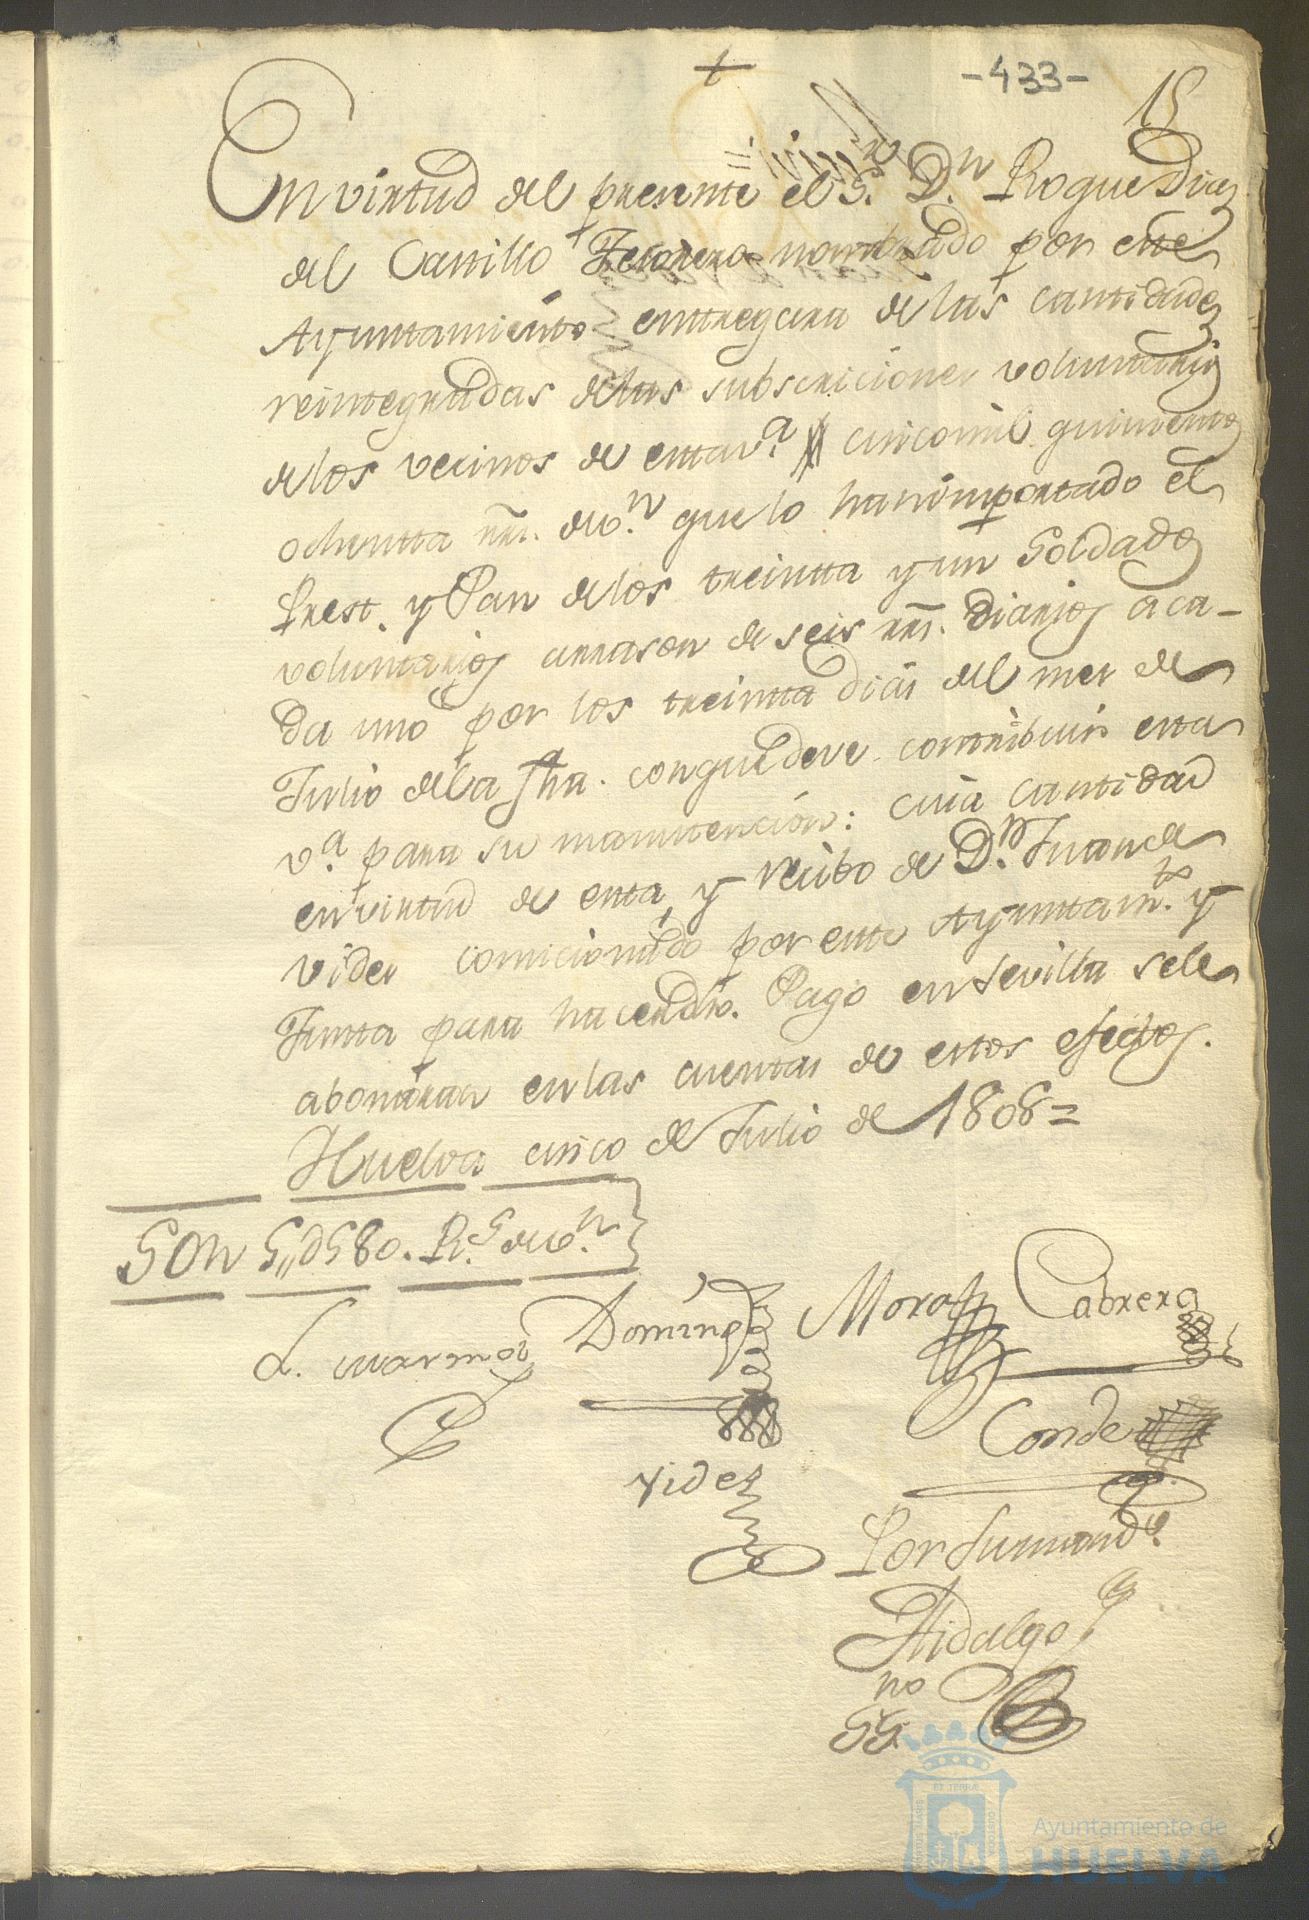 -433-
15
En virtud del presente el S.r D.n Roque Diaz
del Castillo Tesorero nombrado por este
Ayuntamiento entregara de las cantidades
reintegradas delas subscriciones voluntarias
delos vecinos de esta v.a cinco mil quinientos
ochenta rrs. de v.n que lo han importado el
Prest. y Pan delos treinta y un Soldados
voluntarios arrason de seis rrs. Diarios a ca-
da uno por los treinta dias del mes de
Julio dela fha. conque deve contribuir esta
v.a para su manutencion: cuia cantidad
en virtud de esta y recibo de D.n Juan de
Vides comicionado por este Ayuntam.to y
Junta para hacer dho. Pago en Sevilla sele
abonaran en las cuentas de estos efectos.
Huelva cinco de Julio de 1808=
SON 5,,d580. R.s de v.n
Domingo Mora Cabrera
Conde
Vides
Por su mand.o
Hidalgo
no
SS.
EX TERRÆ
Ayuntamiento de
HUELVA